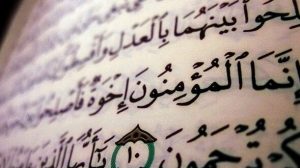 لِحُوا۟ بَيْنَهُمَا بِٱلْعَدْلِ وَأَقْسِ
إِنَّمَا ٱلْمُؤْمِنُونَ إِخْوَةٌ فَأَصْلِحُ
كُمْ تُرْحَمُونَ ١٠ يَٰٓأَيُّهَا ٱلَّذِينَ